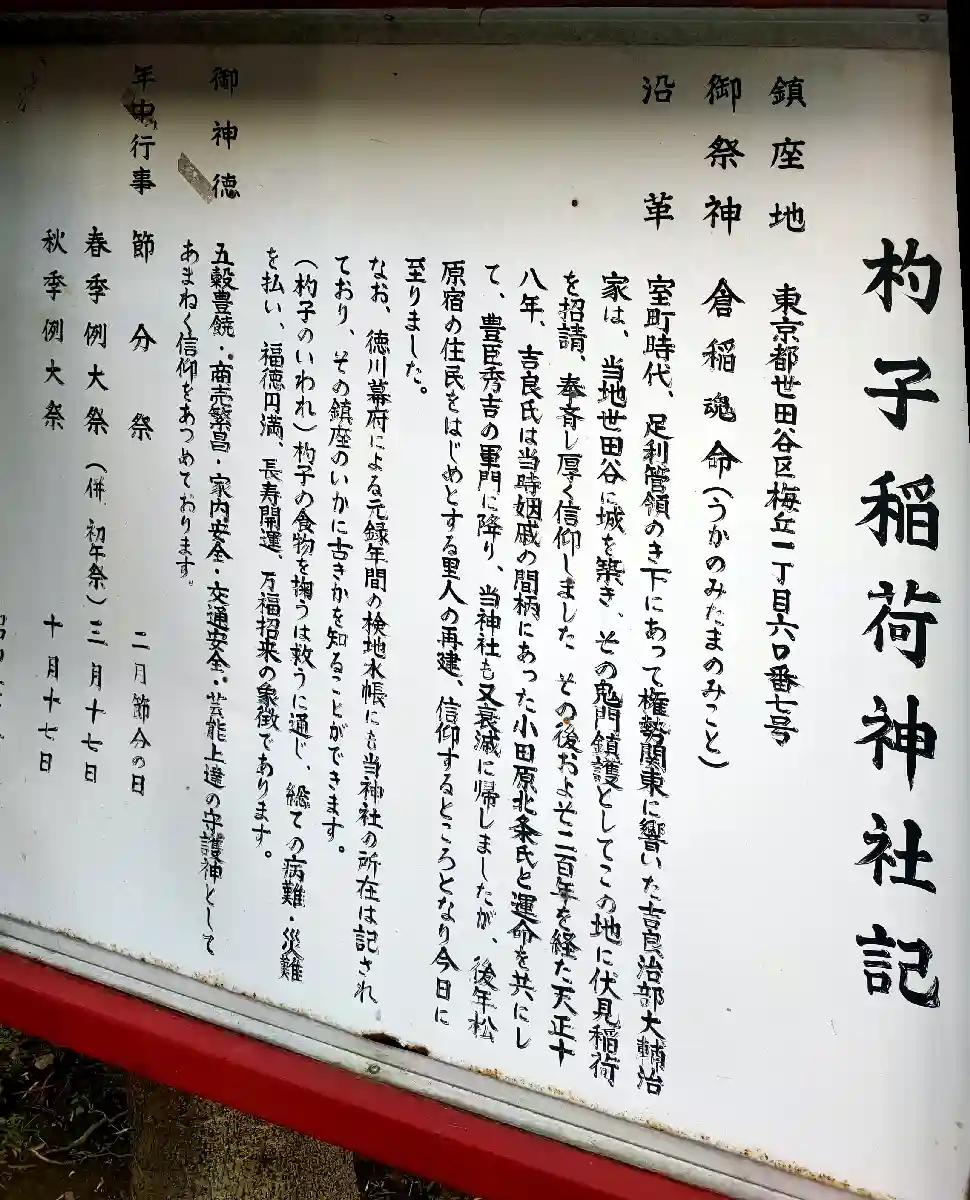 杓子稲荷神社記
鎮座地　東京都世田谷区梅丘一丁目六〇番七号
御祭神　倉稲魂命（うかのみたまのみこと）
沿革　室町時代、足利管領のき下にあって権勢関東に響いた吉良治部大輔治
家は、当地世田谷に城を築き、その鬼門鎮護としてこの地に伏見稲荷
を招請、奉斉し厚く信仰しました　その後およそ二百年を経た天正十
八年、吉良氏は当時姻戚の間柄にあった小田原北条氏と運命を共にし
て、豊臣秀吉の軍門に降り、当神社も又衰滅に帰しましたが、後年松
原宿の住民をはじめとする里人の再建、信仰するところとなり今日に
至りました。
なお、徳川幕府による元録年間の検地水帳にも当神社の所在は記され
ており、その鎮座のいかに古きかを知ることができます。
（杓子のいわれ）杓子の食物を掬うは救うに通じ、総ての病難・災難
を払い、福徳円満、長寿開運、万福招来の象徴であります。
御神徳　五穀豊饒・商売繁昌・家内安全・交通安全・芸能上達の守護神として
あまねく信仰をあつめております。
年中行事　節分祭　二月節分の日
春季例大祭（併　初午祭）三月十七日
秋季例大祭　十月十七日